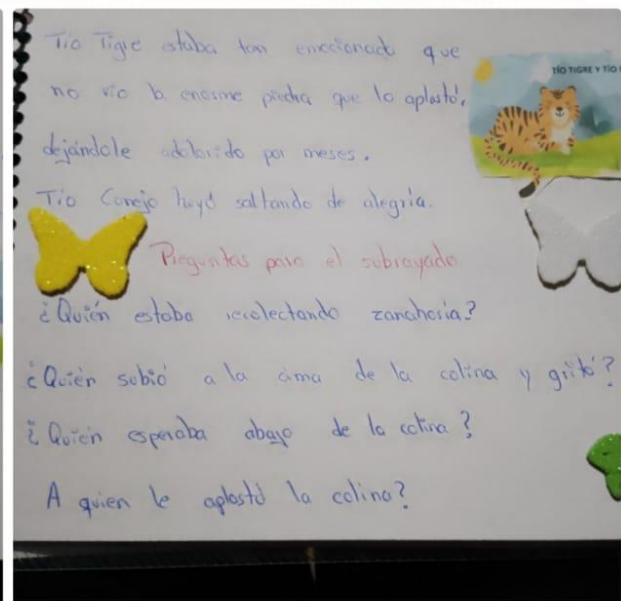 Tío Tigre estaba tan emocionado que
TÍO TIGRE Y TÍO
no vio la enorme piedra que lo aplastó,
dejándole adolorido por meses.
Tío Conejo huyó saltando de alegría.
Preguntas para el subrayado
¿Quién estaba recolectando zanahoria?
¿Quién subió a la cima de la colina y gritó?
¿Quién esperaba abajo de la colina?
A quien le aplastó la colina?